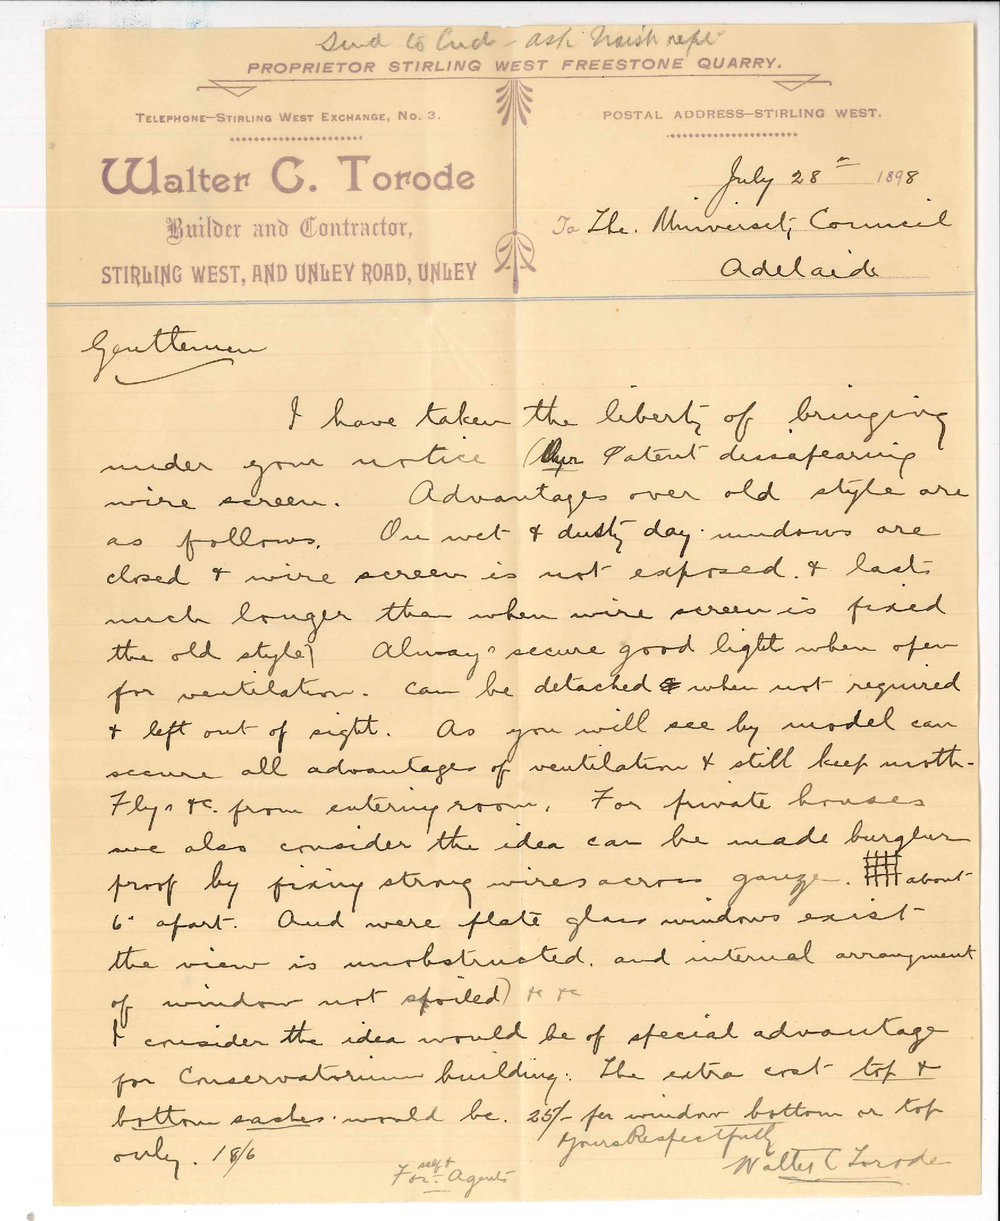 Send to End - ask Naish repr
PROPRIETOR STIRLING WEST FREESTONE QUARRY.
TELEPHONE—STIRLING WEST EXCHANGE, NO. 3.
POSTAL ADDRESS—STIRLING WEST.
Walter C. Torode
Builder and Contractor,
STIRLING WEST, AND UNLEY ROAD, UNLEY
July 28th 1898
To The University Council
Adelaide
Gentlemen
I have taken the liberty of bringing
under your notice (Our Patent dissapearing
wire screen. Advantages over old style are
as follows. On wet & dusty day windows are
closed & wire screen is not exposed. & lasts
much longer than when wire screen is fixed
the old style) Always secure good light when open
for ventilation. Can be detached when not required
& left out of sight. As you will see by model can
secure all advantages of ventilation & still keep moth-
Flys &c. from entering room. For private houses
we also consider the idea can be made burglur
proof by fixing strong wires across gauze. about
6" apart. And were plate glass windows exist
the view is unobstructed. and internal arrangment
of window not spoiled) &c &c
I consider the idea would be of special advantage
for Conservatorium building. The extra cost top &
bottom sashes would be. 25/- per window bottom or top
only. 18/6
Yours Respectfully
Walter C Torode
For self & Agents